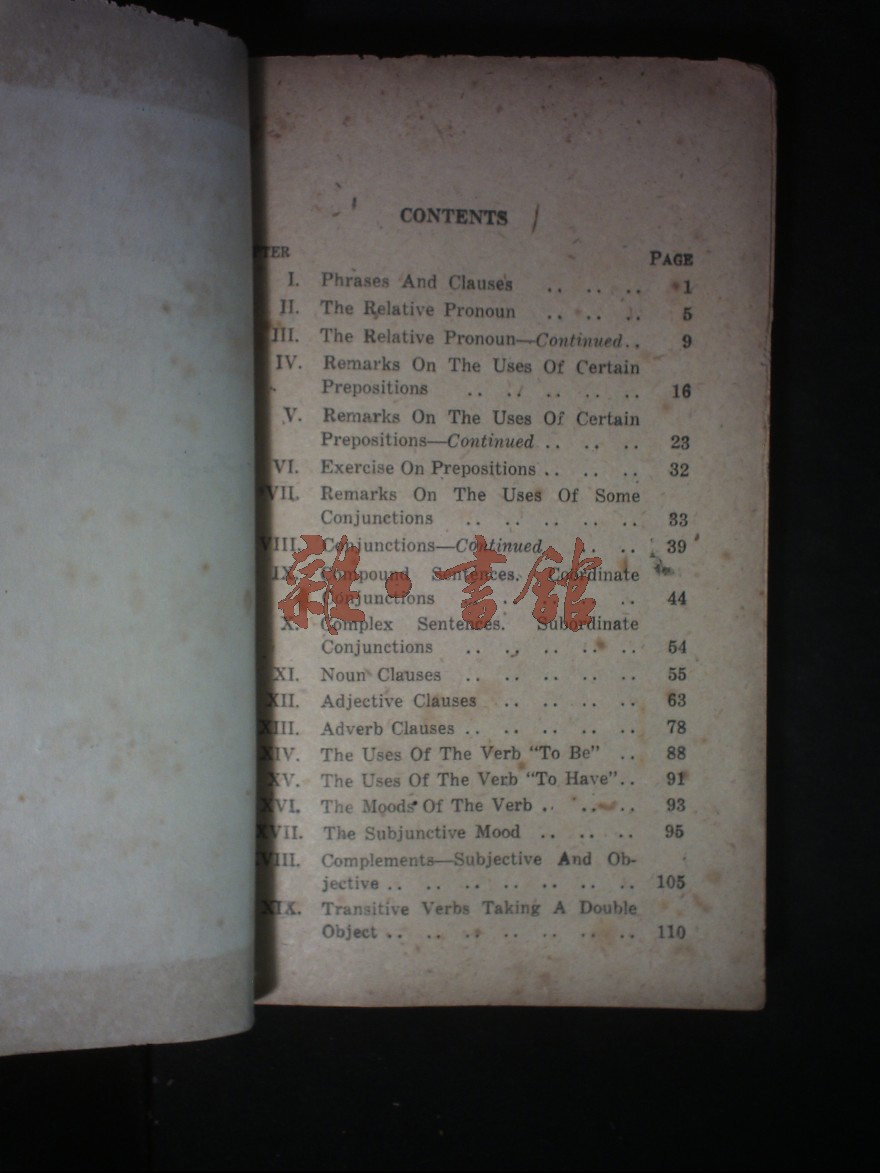 CONTENTS
PTER PAGE
I. Phrases And Clauses .. .. .. 1
II. The Relative Pronoun .. .. .. 5
III. The Relative Pronoun—Continued.. 9
IV. Remarks On The Uses Of Certain
Prepositions .. .. .. .. .. 16
V. Remarks On The Uses Of Certain
Prepositions—Continued .. .. .. 23
VI. Exercise On Prepositions .. .. .. 32
VII. Remarks On The Uses Of Some
Conjunctions .. .. .. .. .. 33
VIII. Conjunctions—Continued .. .. 39
IX. Compound Sentences. Coordinate
Conjunctions .. .. .. 44
X. Complex Sentences. Subordinate
Conjunctions .. .. .. .. .. 54
XI. Noun Clauses .. .. .. .. .. 55
XII. Adjective Clauses .. .. .. .. 63
XIII. Adverb Clauses .. .. .. .. .. 78
XIV. The Uses Of The Verb "To Be" .. 88
XV. The Uses Of The Verb "To Have".. 91
XVI. The Moods Of The Verb .. .. .. 93
XVII. The Subjunctive Mood .. .. .. 95
XVIII. Complements—Subjective And Ob-
jective .. .. .. .. .. .. .. 105
XIX. Transitive Verbs Taking A Double
Object .. .. .. .. .. .. .. 110
雜·書館